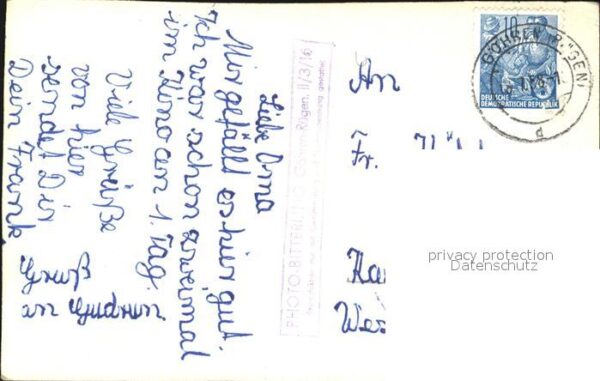 Liebe Oma
Mir gefällt es hier gut.
Ich war schon zweimal
im Kino am 1. Tag.
Viele Grüße
von hier
sendet Dir
Dein Frank
Gruß
an Gudrun
PHOTO-BITTERLING Göhren Rügen, II/3/16
An
Fr.
Ka
Wei
10
DEUTSCHE
DEMOKRATISCHE REPUBLIK
GÖHREN (RÜGEN)
d
privacy protection
Datenschutz